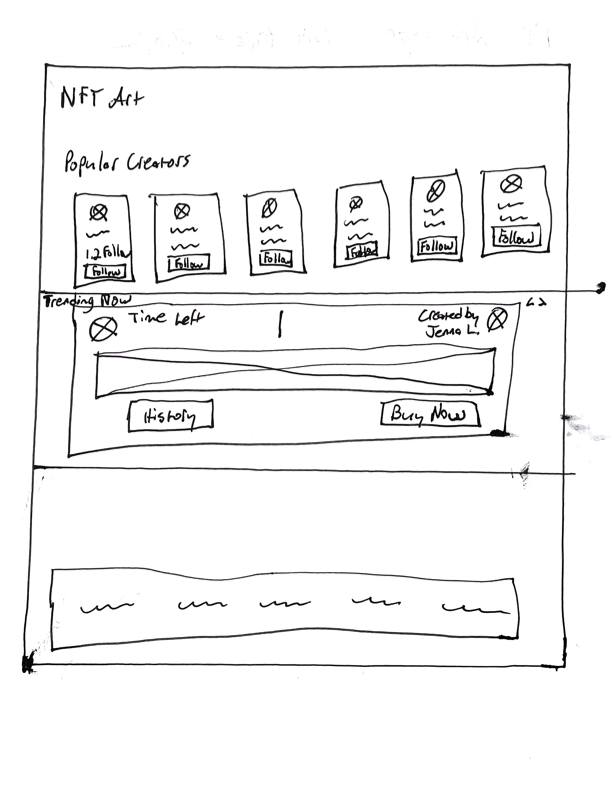 NFT Art
Popular Creators
1.2 Follow
Follow
Follow
Follow
Follow
Follow
Follow
Trending Now
< >
Time Left
Created by
Jenna L.
History
Buy Now